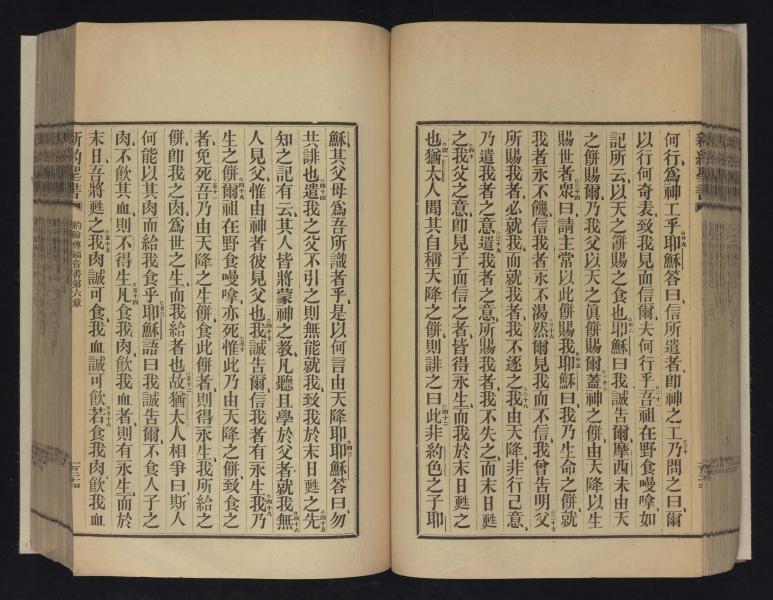 何行爲神工乎耶穌答曰信所遣者卽神之工乃問之曰爾
以行何奇表致我見而信爾夫何行乎吾祖在野食嗎嗱如
記所云以天之餅賜之食也耶穌曰我誠告爾摩西未由天
之餅賜爾乃我父以天之眞餅賜爾蓋神之餅由天降以生
賜世者衆曰請主常以此餅賜我耶穌曰我乃生命之餅就
我者永不饑信我者永不渴然爾見我而不信我曾告明父
所賜我者必就我而就我者我不逐之我由天降非行己意
乃遣我者之意遣我者之意所賜我者我不失之而末日甦
之我父之意卽見子而信之者皆得永生而我於末日甦之
也猶太人聞其自稱天降之餅則誹之曰此非約色之子耶
穌其父母爲吾所識者乎是以何言由天降耶耶穌答曰勿
共誹也遣我之父不引之則無能就我致我於末日甦之先
知之記有云其人皆將蒙神之教凡聽且學於父者就我無
人見父惟由神者彼見父也我誠告爾信我者有永生我乃
生之餅爾祖在野食嗎嗱亦死惟此乃由天降之餅致食之
者免死吾乃由天降之生餅食此餅者則得永生我所給之
餅卽我之肉爲世之生而我給者也故猶太人相爭曰斯人
何能以其肉而給我食乎耶穌語曰我誠告爾不食人子之
肉不飲其血則不得生凡食我肉飲我血者則有永生而於
末日吾將甦之我肉誠可食我血誠可飲若食我肉飲我血
新約聖書 約翰傳福音書第六章